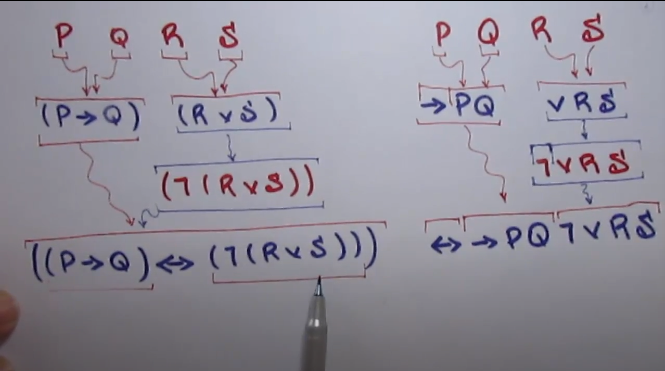 P Q R S
(P→Q) (R∨S)
(¬(R∨S))
((P→Q)↔(¬(R∨S)))
P Q R S
→PQ ∨RS
¬∨RS
↔→PQ¬∨RS